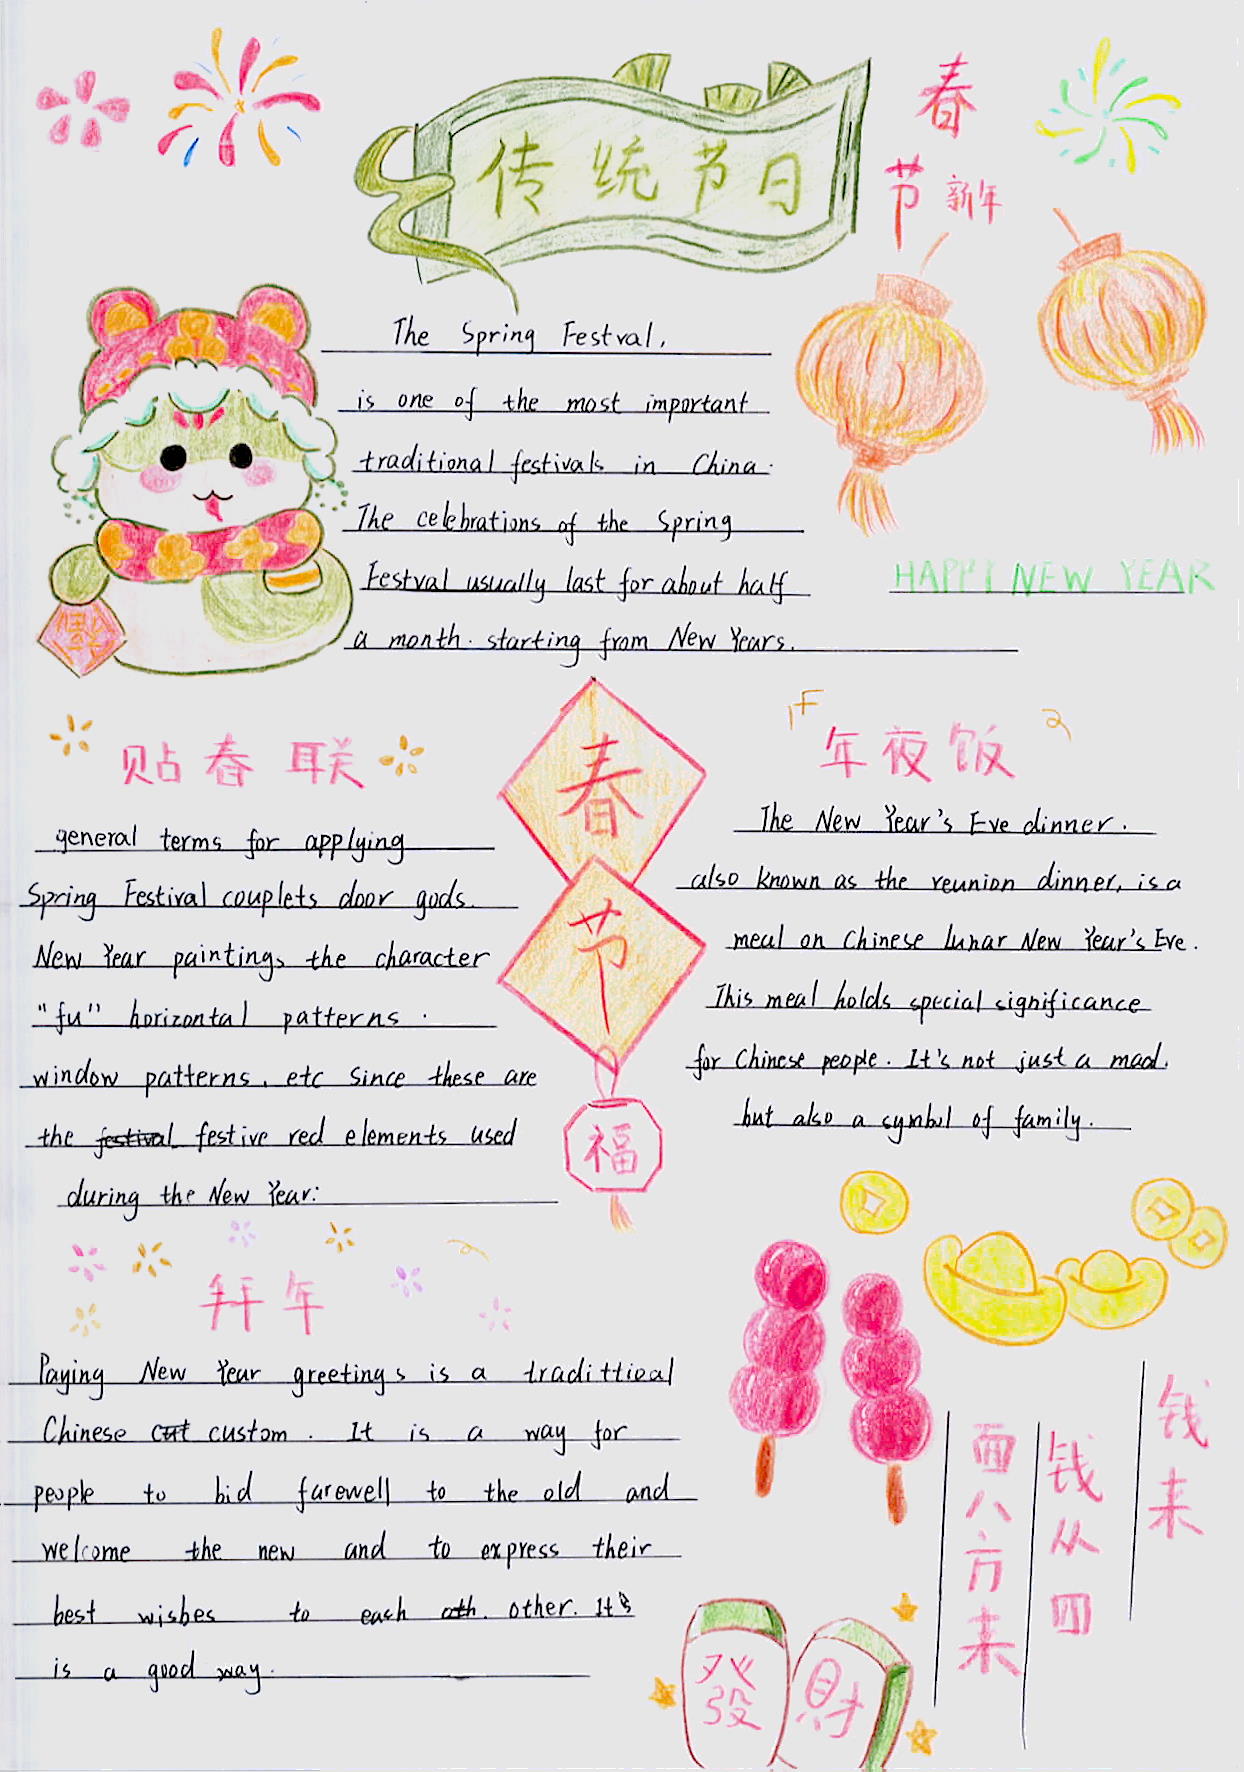 传统节日
春
节 新年
The Spring Festval,
is one of the most important
traditional festivals in China.
The celebrations of the Spring
Festval usually last for about half
a month. starting from New Years.
HAPPY NEW YEAR
福
贴春联
general terms for applying
Spring Festival couplets door gods.
New Year paintings the character
"fu" horizontal patterns.
window patterns, etc Since these are
the festival festive red elements used
during the New Year:
春
节
福
年夜饭
The New Year's Eve dinner.
also known as the reunion dinner, is a
meal on Chinese lunar New Year's Eve.
This meal holds special significance
for Chinese people. It's not just a meal.
but also a symbol of family.
拜年
Paying New Year greetings is a tradittioal
Chinese cut custom. It is a way for
people to bid farewell to the old and
welcome the new and to express their
best wishes to each oth. other. It's
is a good way.
钱来
钱从四
面八方来
發
財